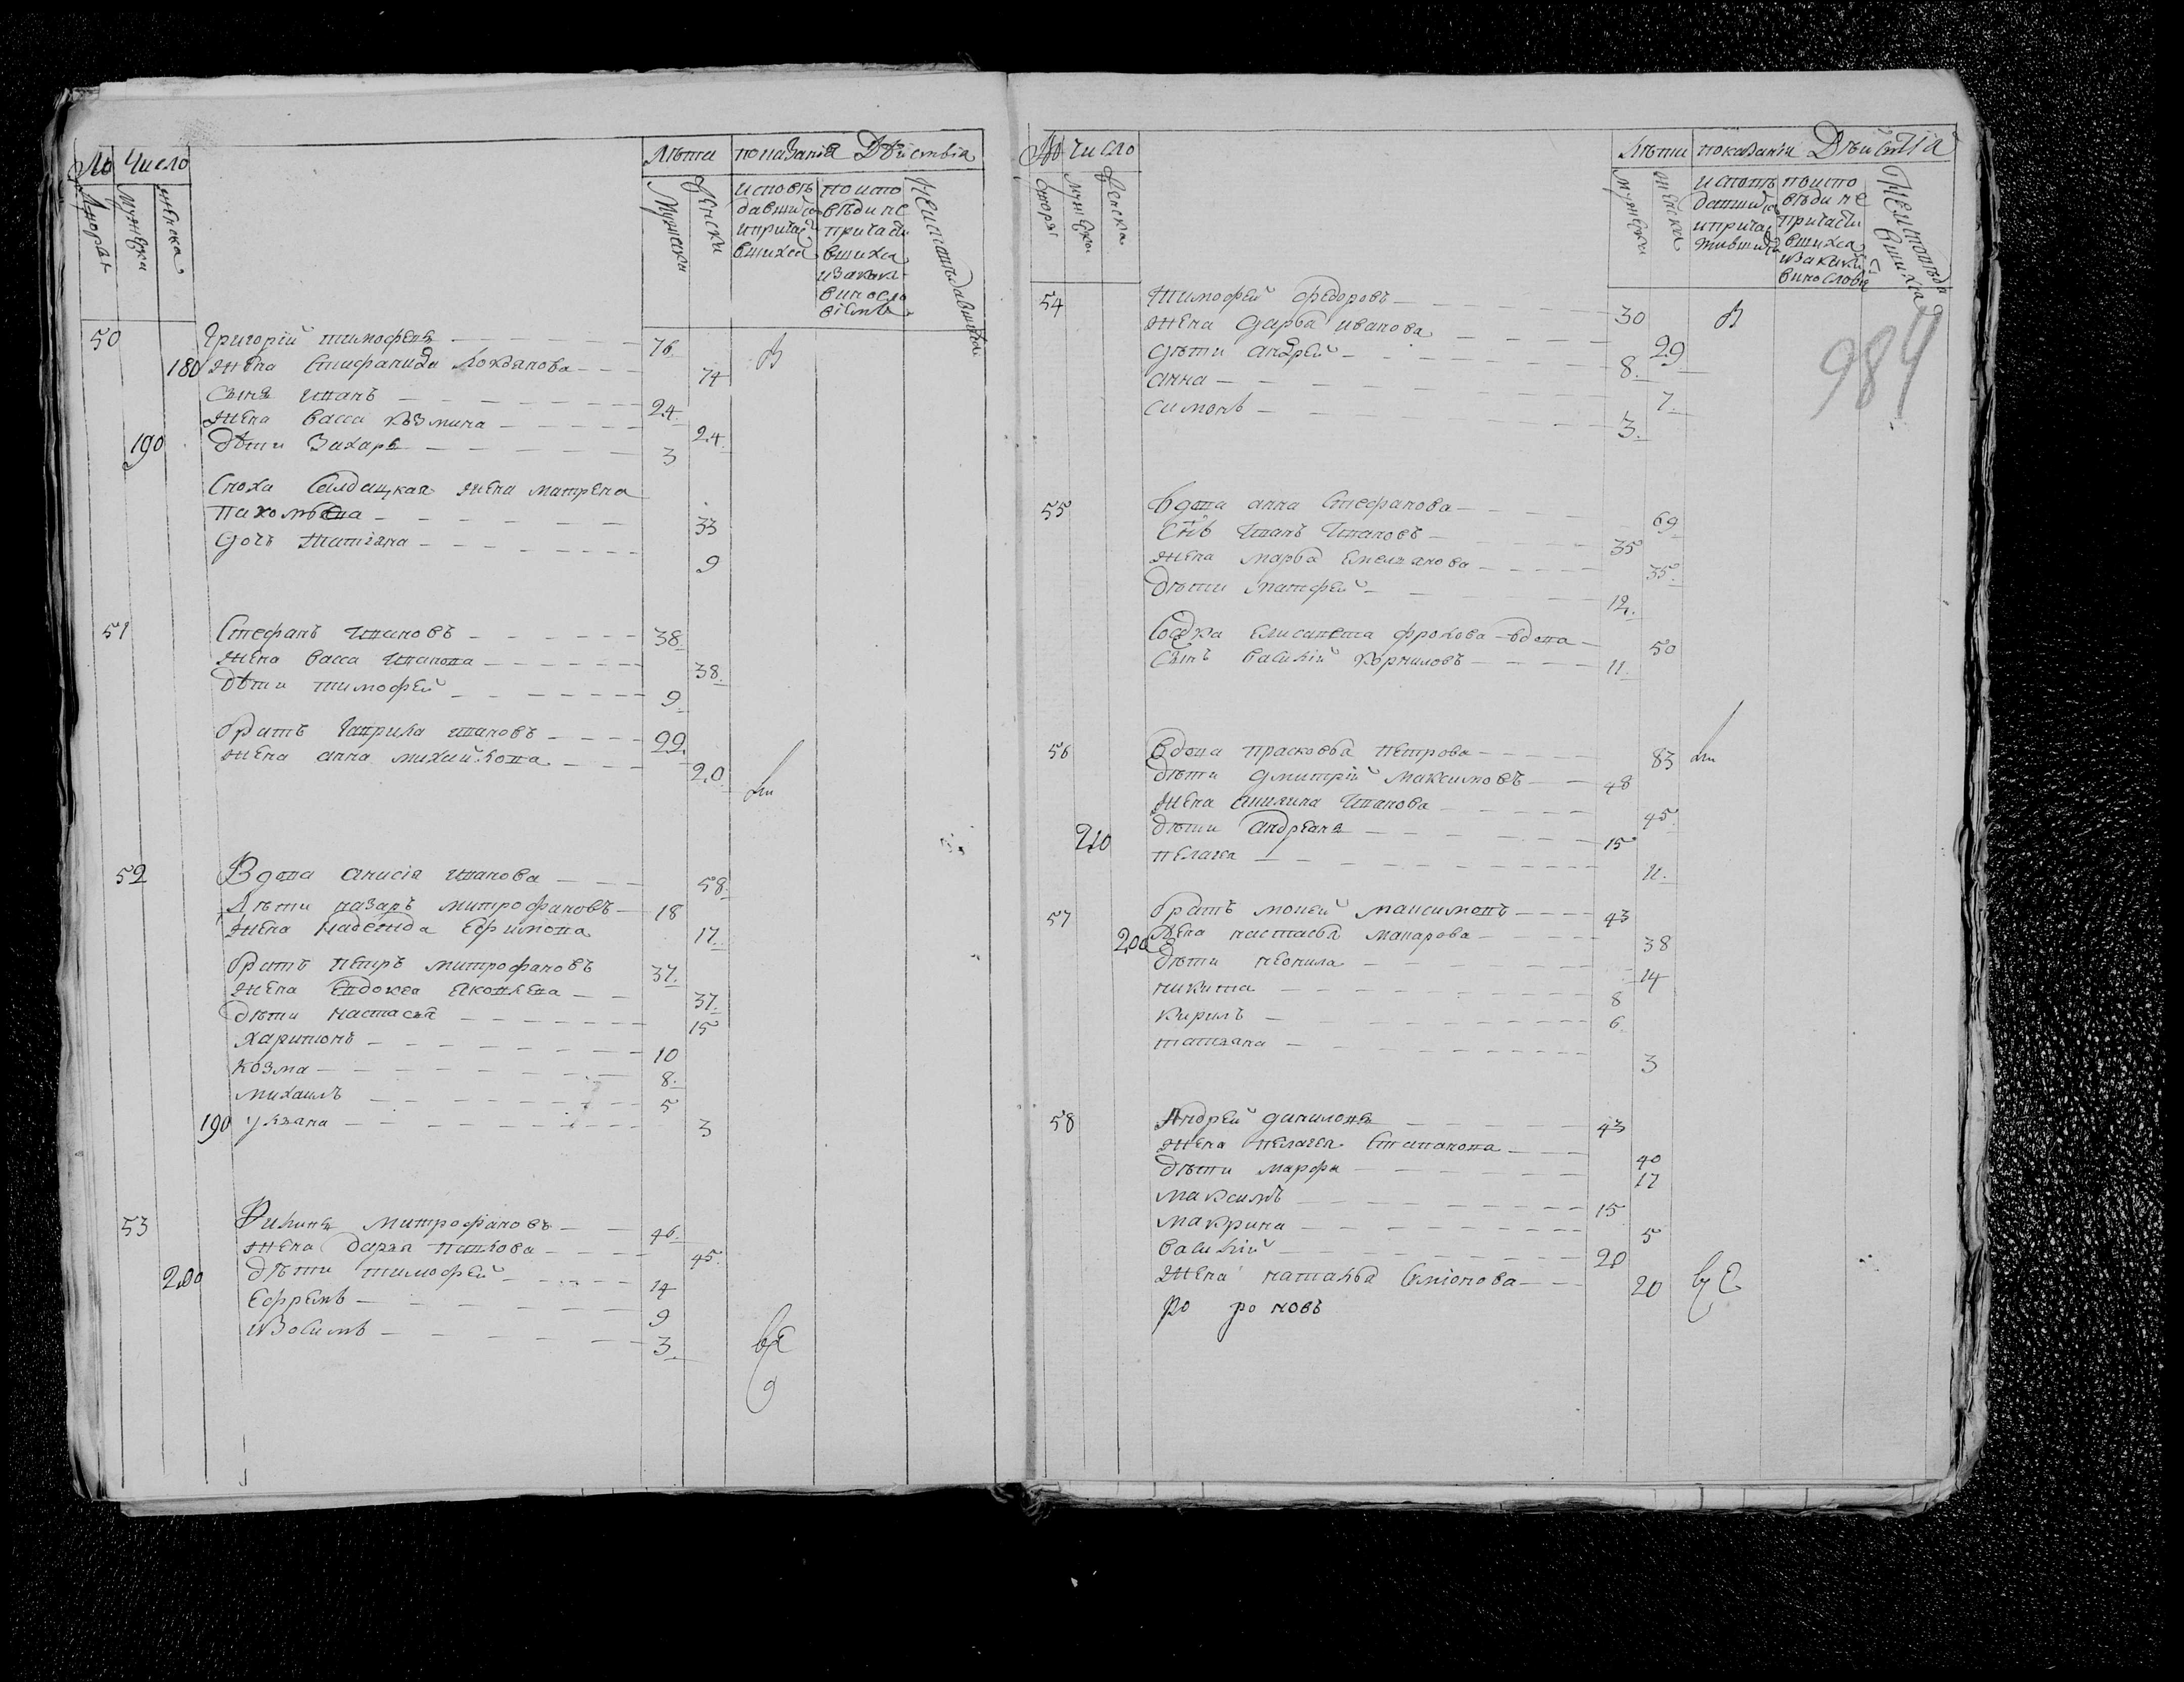 № Число Лѣта показанія Дѣйствія
дворы мужеска женска мужески женски
исповѣ
давшихся
и прича
вшихся
по испо
вѣди не
прича
вшихся
и за каки
винословіемъ
Неисповѣдавшихся
50 Григорій тимофеевъ 76 В
180 Жена Стефанида 74
Сынъ иванъ 24
Жена васса Козмина 24
190 Дѣти Захаръ 3
Сноха Салдацкая жена матрена
пахомова 33
дочь татіана 9
51 Стефанъ ивановъ 38
Жена васса иванова 38
Дѣти тимофей 9
братъ гаврила ивановъ 22
жена анна михайлова 20
52 Вдова анисія иванова 58
Дѣти назаръ митрофановъ 18
Жена надежда ефимова 17
братъ петръ митрофановъ 37
Жена Евдокеа яковлева 37
Дѣти настасья 15
Харитонъ 10
козма 8
михаилъ 5
190 уляана 3
53 Филипъ митрофановъ 46
жена дарья павлова 45
200 Дѣти тимофей 14
Ефремъ 9
изосимъ 3
№ число Лѣта показанія Дѣйствія
дворы мужески женска мужески женска
исповѣ
давшихся
и прича
вшихся
по испо
вѣди не
причасти
вшихся
и за каки
винословіе
Неисповѣда
вшихся
984
54 Тимофей федоровъ 30 В
Жена дарья иванова 29
дѣти андрей 8
анна 7
симонъ 3
55 Вдова анна Стефанова 69
Снъ Иванъ Ивановъ 35
Жена марья Емелянова 35
Дѣти матфей 12
Соѣдка Елисавета фролова вдова 50
Сынъ василій корниловъ 11
56 Вдова прасковья петрова 83
Дѣти дмитрій максимовъ 48
Жена Иванова 45
210 Дѣти андреанъ 15
пелагея 11
57 братъ мосей максимовъ 43
200 Жена настасья макарова 38
Дѣти неонила 14
никита 8
кирилъ 6
татіана 3
58 Андрей даниловъ 43
жена пелагея Степанова 40
дѣти марфа 17
максимъ 15
макрина 5
василій 20
Жена наталья Симіонова 20